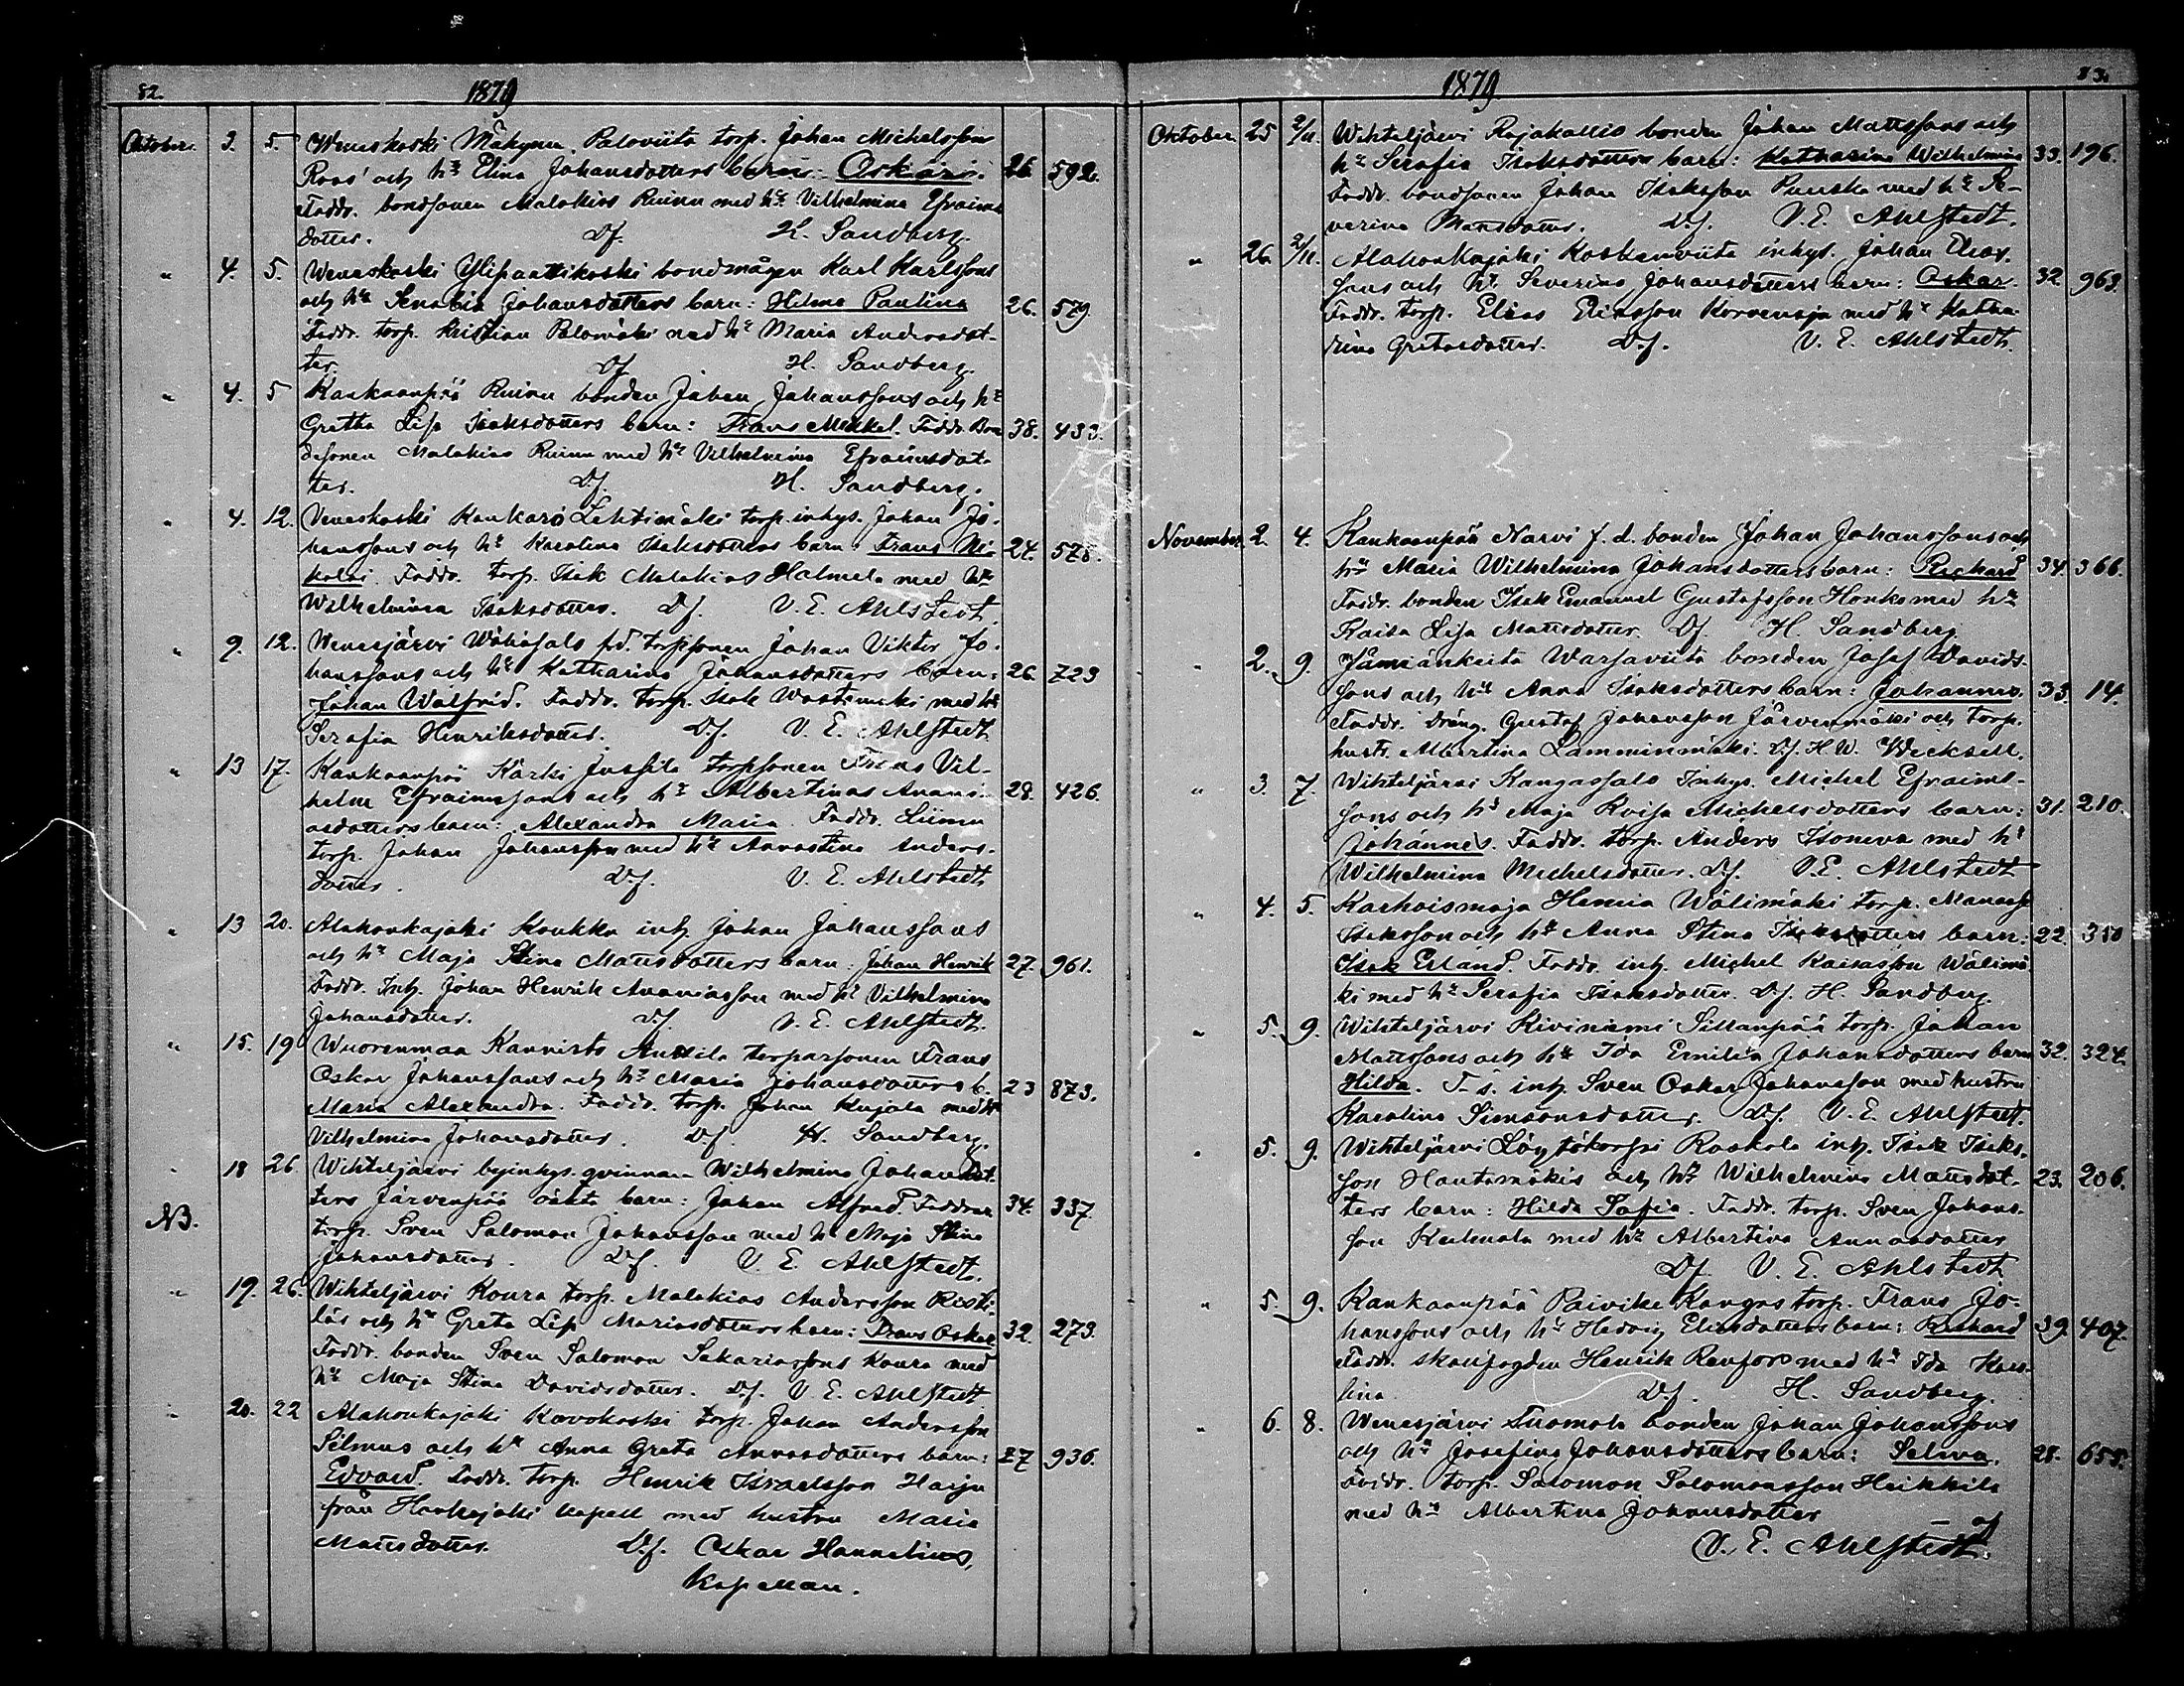 82. 1879
Oktober. 3. 5. Weneskoski Mäkynen Paloviita torp. Johan Michelsson
Roos' och hs Elina Johansdotters barn: Oskari. 26. 592.
Faddr. bondsonen Malakias Ruinu med hu Vilhelmina Efraims
dotter. Df. H. Sandberg.
" 4. 5. Weneskoski Ylipaattikoski bondmågen Karl Karlssons
och hs Senabia Johansdotters barn: Hilma Paulina 26. 579.
Faddr. torp. Kristian Palomäki med hu Maria Andersdot-
ter. Df. H. Sandberg.
" 4. 5 Kankaanpää Ruinu bonden Johan Johanssons och hs
Gretha Lisa Isaksdotters barn: Frans Mikkel. Faddr. Bon 38. 433.
desonen Malakias Ruinu med hu Vilhelmina Efraimsdot-
ter. Df. H. Sandberg.
" 4. 12. Veneskoski Kankarö Lehtimäki torp. inhys. Johan Jo-
hanssons och hs Karolina Isaksdotters barn: Frans Ni- 24. 578.
kolai. Faddr. torp. Isak Malakias Halmela med hu
Wilhelmina Isaksdotter. Df. V. E. Ahlstedt.
" 9. 12. Wenesjärvi Wähäsalo fd. torpsonen Johan Viktor Jo-
hanssons och hs Katharina Johansdotters barn: 26. 723
Johan Walfrid. Faddr. torp. Isak Wastamäki med hu
Serafia Henriksdotter. Df. V. E. Ahlstedt.
" 13 17. Kankaanpää Kärki Jussila torpsonen Frans Vil-
helm Efraimssons och hs Albertinas Anani-
asdotters barn: Alexandra Maria. Faddr. Liinu 28. 426.
torp. Johan Johansson med hu Annastina Anders-
dotter. Df. V. E. Ahlstedt
" 13 20. Alahonkajoki Koukka inh. Johan Johanssons
och hs Maja Stina Mattsdotters barn: Johan Henrik 27. 961.
Faddr. Inh. Johan Henrik Ananiasson med hu Vilhelmina
Johansdotter. Df. V. E. Ahlstedt.
" 15. 19 Wuorenmaa Kannisto Anttila torparsonen Frans
Oskar Johanssons och hs Maria Johansdotters b. 23 873.
Maria Alexandra. Faddr. torp. Johan Kujala med hu
Vilhelmina Johansdotter. Df. H. Sandberg.
" 18 26. Wihteljärvi byinhys. qvinnan Wilhelmina Johansdot-
ters Järvenpää oäkta barn: Johan Alfred. Faddrar 34. 337.
NB. torp. Sven Salomon Johansson med hu Maja Stina
Johansdotter. Df. V. E. Ahlstedt.
" 19. 26. Wihteljärvi Koura torp. Malakias Andersson Risti-
läs och hs Greta Lisa Mariasdotters barn: Frans Oskar 32. 273.
Faddr. bonden Sven Salomon Sakariassons Koura med
hu Maja Stina Davidsdotter. Df. V. E. Ahlstedt.
" 20. 22 Alahonkajoki Kovokoski torp. Johan Andersson
Silmus och hs Anna Greta Annasdotters barn: 27 936.
Edvard. Faddr. torp. Henrik Israelsson Harju
från Honkajoki kapell med hustru Maria
Mattsdotter. Df. Oskar Hannelius,
kapellan.
1879 83.
Oktober 25 2/11. Wihteljärvi Rajakallio bonden Johan Mattssons och
hs Serafia Isaksdotters barn: Katharina Wilhelmina 33. 196.
Faddr. bondsonen Johan Isaksson Punska med hu Se-
verina Mansdotter. Df. V. E. Ahlstedt.
" 26. 2/11. Alahonkajoki Koskenviita inhys. Johan Elias-
sons och hs Severina Johansdotters barn: Oskar. 32. 963.
Faddr. torp. Elias Eliasson Korvenoja med hu Katha-
rina Gretasdotter. Df. V. E. Ahlstedt.
November. 2. 4. Kankaanpää Narvi f. d. bonden Johan Johanssons och
hs Maria Wilhelmina Johansdotters barn: Richard 34. 366.
Faddr. bonden Isak Emanuel Gustafsson Honko med hu
Kaisa Lisa Mattsdotter. Df. H. Sandberg.
" 2. 9. Jämiänkeita Warsaviita bonden Josef Davids-
sons och hs Anna Isaksdotters barn: Johannes. 33. 14.
Faddr. dräng. Gustaf Johansson Järvenmäki och torp.
hustr. Albertina Lamminmäki. Df. H. W. Wicksell.
" 3. 7. Wihteljärvi Kangassalo Inhys. Michel Efraims-
sons och hs Maja Kaisa Michelsdotters barn: 31. 210.
Johannes. Faddr. torp. Anders Isoneva med hu
Wilhelmina Michelsdotter. Df. V. E. Ahlstedt
" 4. 5. Karhoismaja Hemia Wälimäki torp. Manasse
Isaksson och hs Anna Stina Isaksdotters barn: 22. 350
Isak Erland. Faddr. inh. Michel Kaisasson Wälimä-
ki med hu Serafia Isaksdotter. Df. H. Sandberg.
" 5. 9. Wihteljärvi Kiviniemi Sillanpää torp. Johan
Mattssons och hs Ida Emilia Johansdotters barn 32. 324.
Hilda. F. s. inh. Sven Oskar Johansson med hustru
Karolina Simsonsdotter. Df. V. E. Ahlstedt.
" 5. 9. Wihteljärvi Löytökorpi Raskala inh. Isak Isaks-
son Hautamäkis och hs Wilhelmina Mattsdot- 23. 206.
ters barn: Hilda Sofia. Faddr. torp. Sven Johans-
son Kulmala med hu Albertina Annasdotter
Df. V. E. Ahlstedt
" 5. 9. Kankaanpää Päivike Kangas torp. Frans Jo-
hanssons och hs Hedvig Eliasdotters barn: Richard 39. 407.
Faddr. skogfogden Henrik Renfors med hu Ida Karo-
lina. Df. H. Sandberg.
" 6. 8. Wenesjärvi Tuomola bonden Johan Johanssons
och hs Josefina Johansdotters barn: Selma. 28. 655.
Faddr. torp. Salomon Salomonsson Heikkilä
med hu Albertina Johansdotter
Df
V. E. Ahlstedt.